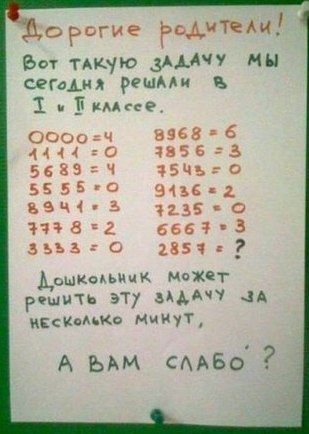 Дорогие родители!
Вот такую задачу мы
сегодня решали в
I и II классе.
0000=4 8968=6
1111=0 7856=3
5689=4 7543=0
5555=0 9136=2
8941=3 7235=0
7778=2 6667=3
3333=0 2857=?
Дошкольник может
решить эту задачу за
несколько минут,
А ВАМ СЛАБО́?